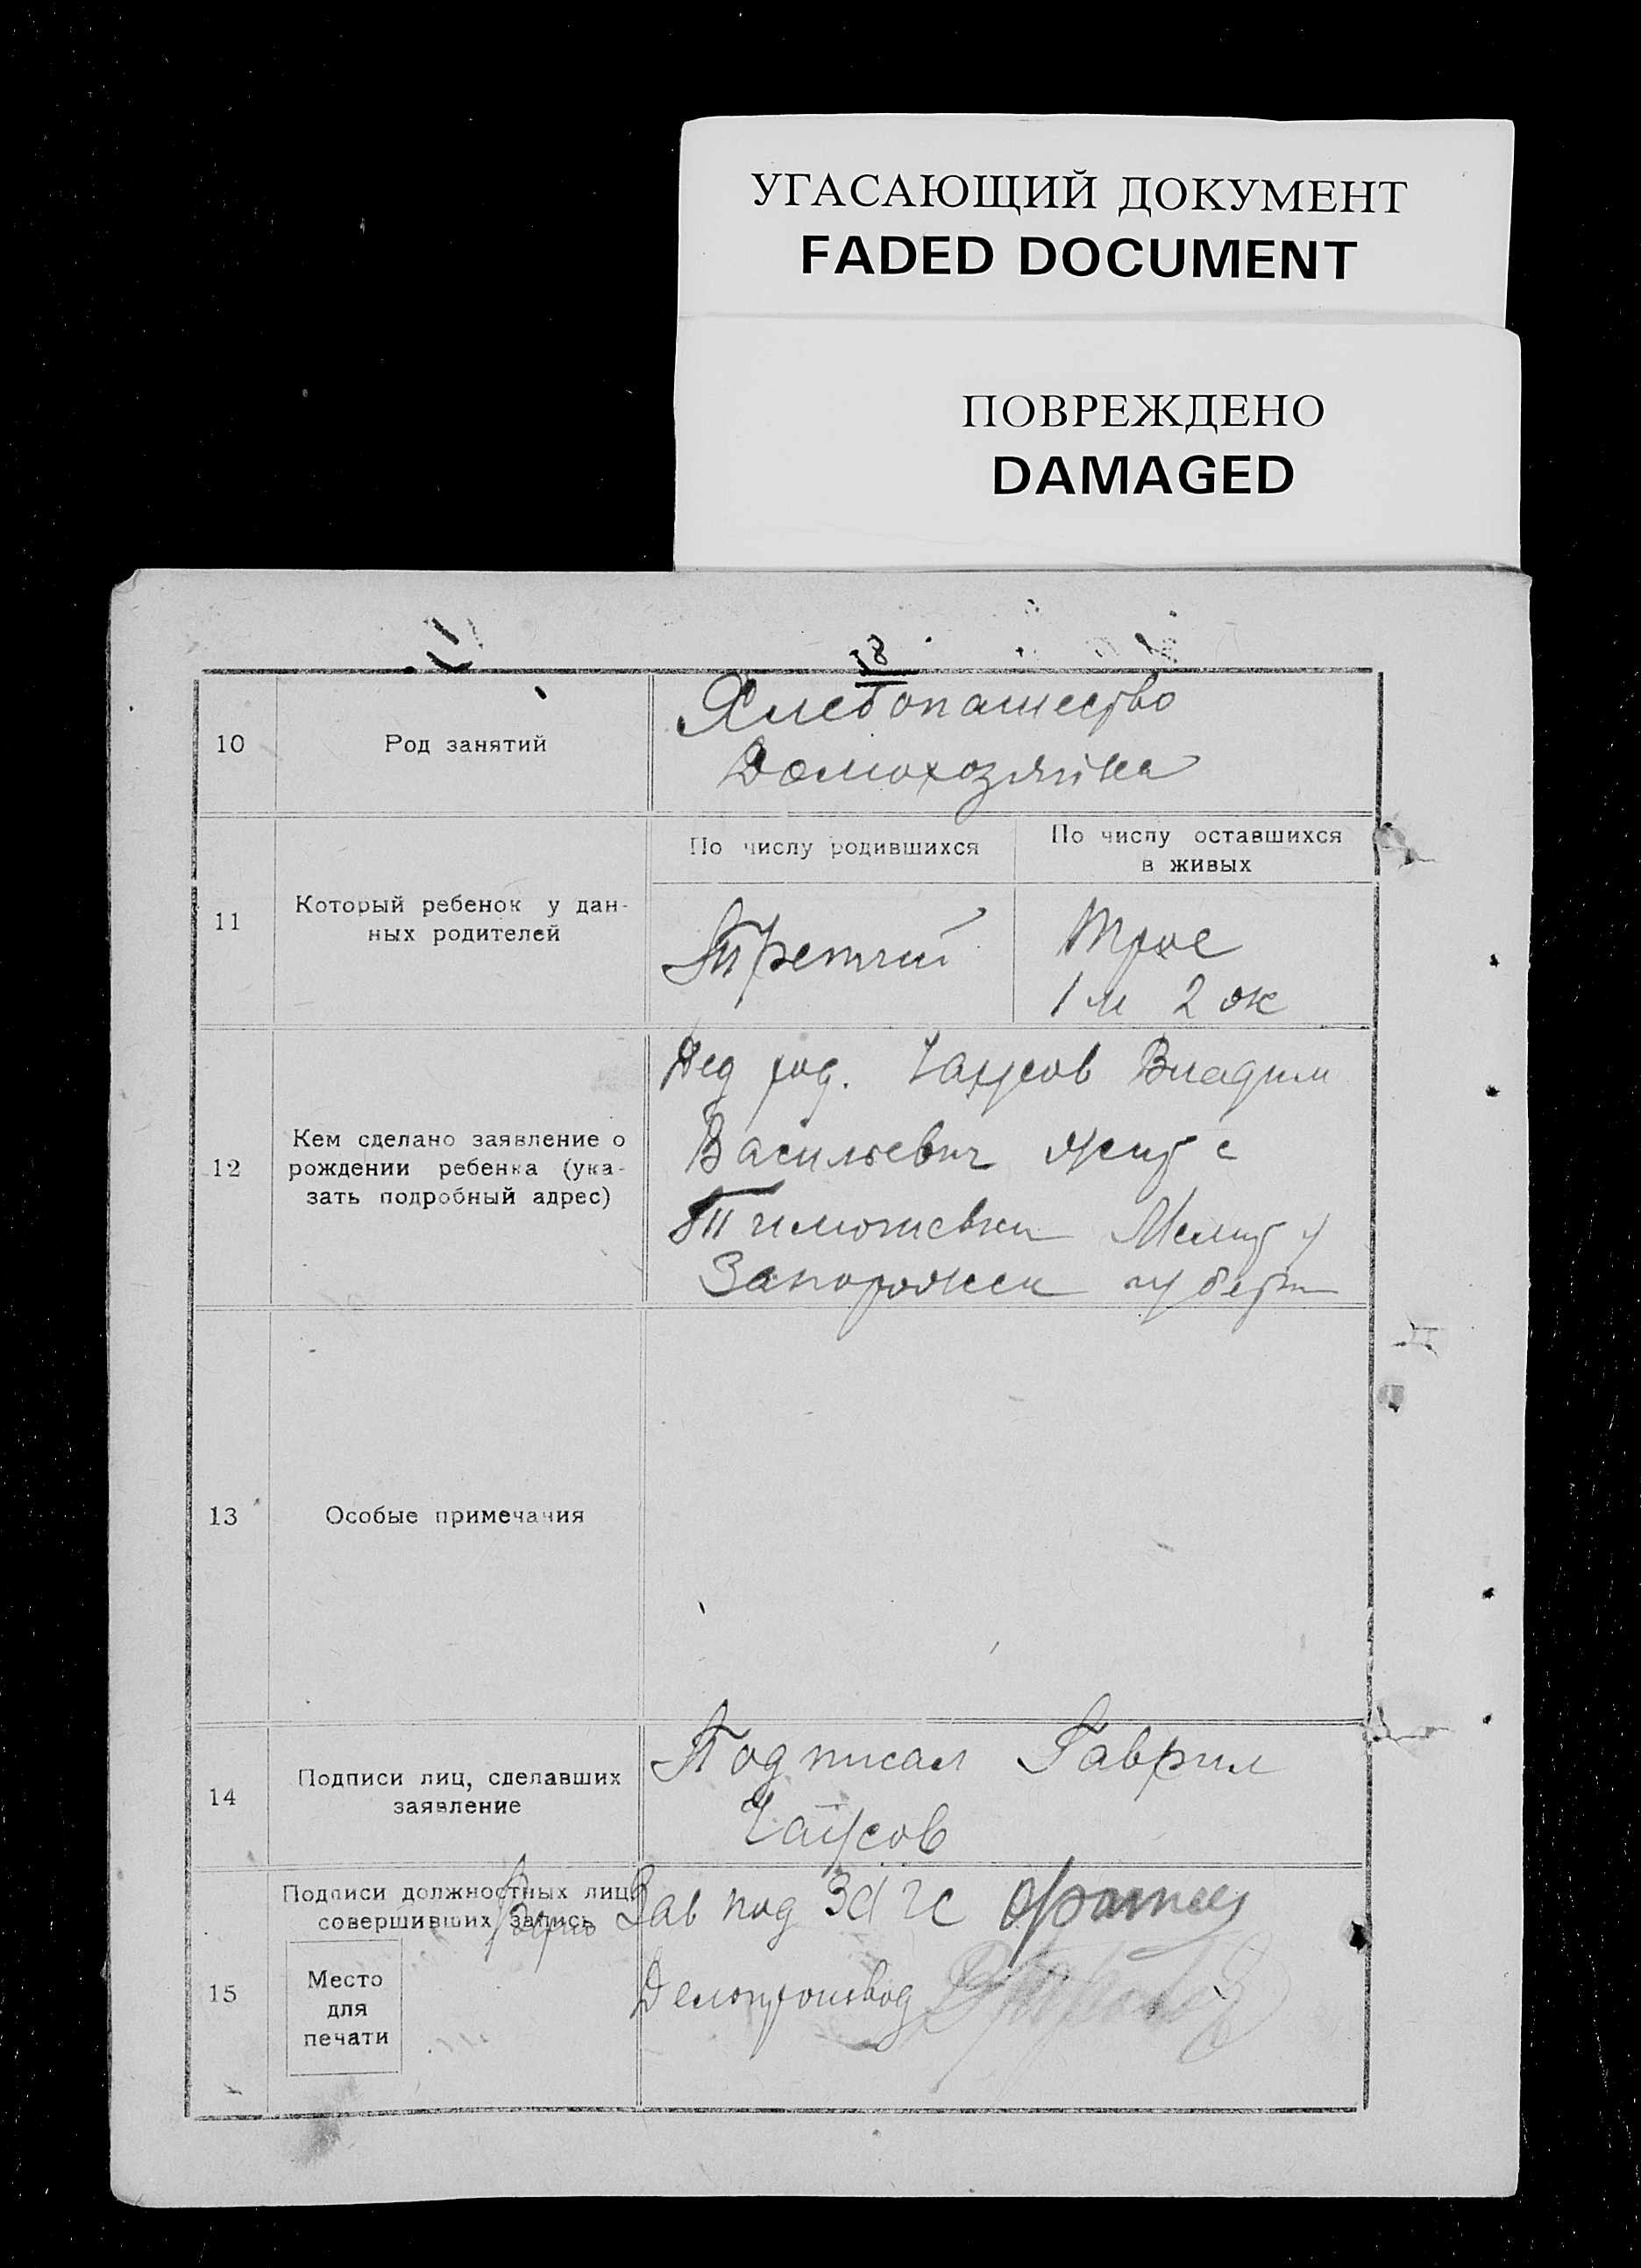 УГАСАЮЩИЙ ДОКУМЕНТ
FADED DOCUMENT
ПОВРЕЖДЕНО
DAMAGED
18
10
Род занятий
Хлебопашество
Домохозяйка
11
Который ребенок у дан-
ных родителей
По числу родившихся
Третий
По числу оставшихся
в живых
Трое
1 м 2 ж
12
Кем сделано заявление о
рождении ребенка (ука-
зать подробный адрес)
Дед род. Чаусов Владим
Васильевич жит с
Тимошевки Мелит у
Запорожск губерн
13
Особые примечания
14
Подписи лиц, сделавших
заявление
Подписал Гаврил
Чаусов
15
Подписи должностных лиц,
совершивших запись
Верно
Зав под ЗАГС
Делопроизвод
Место
для
печати